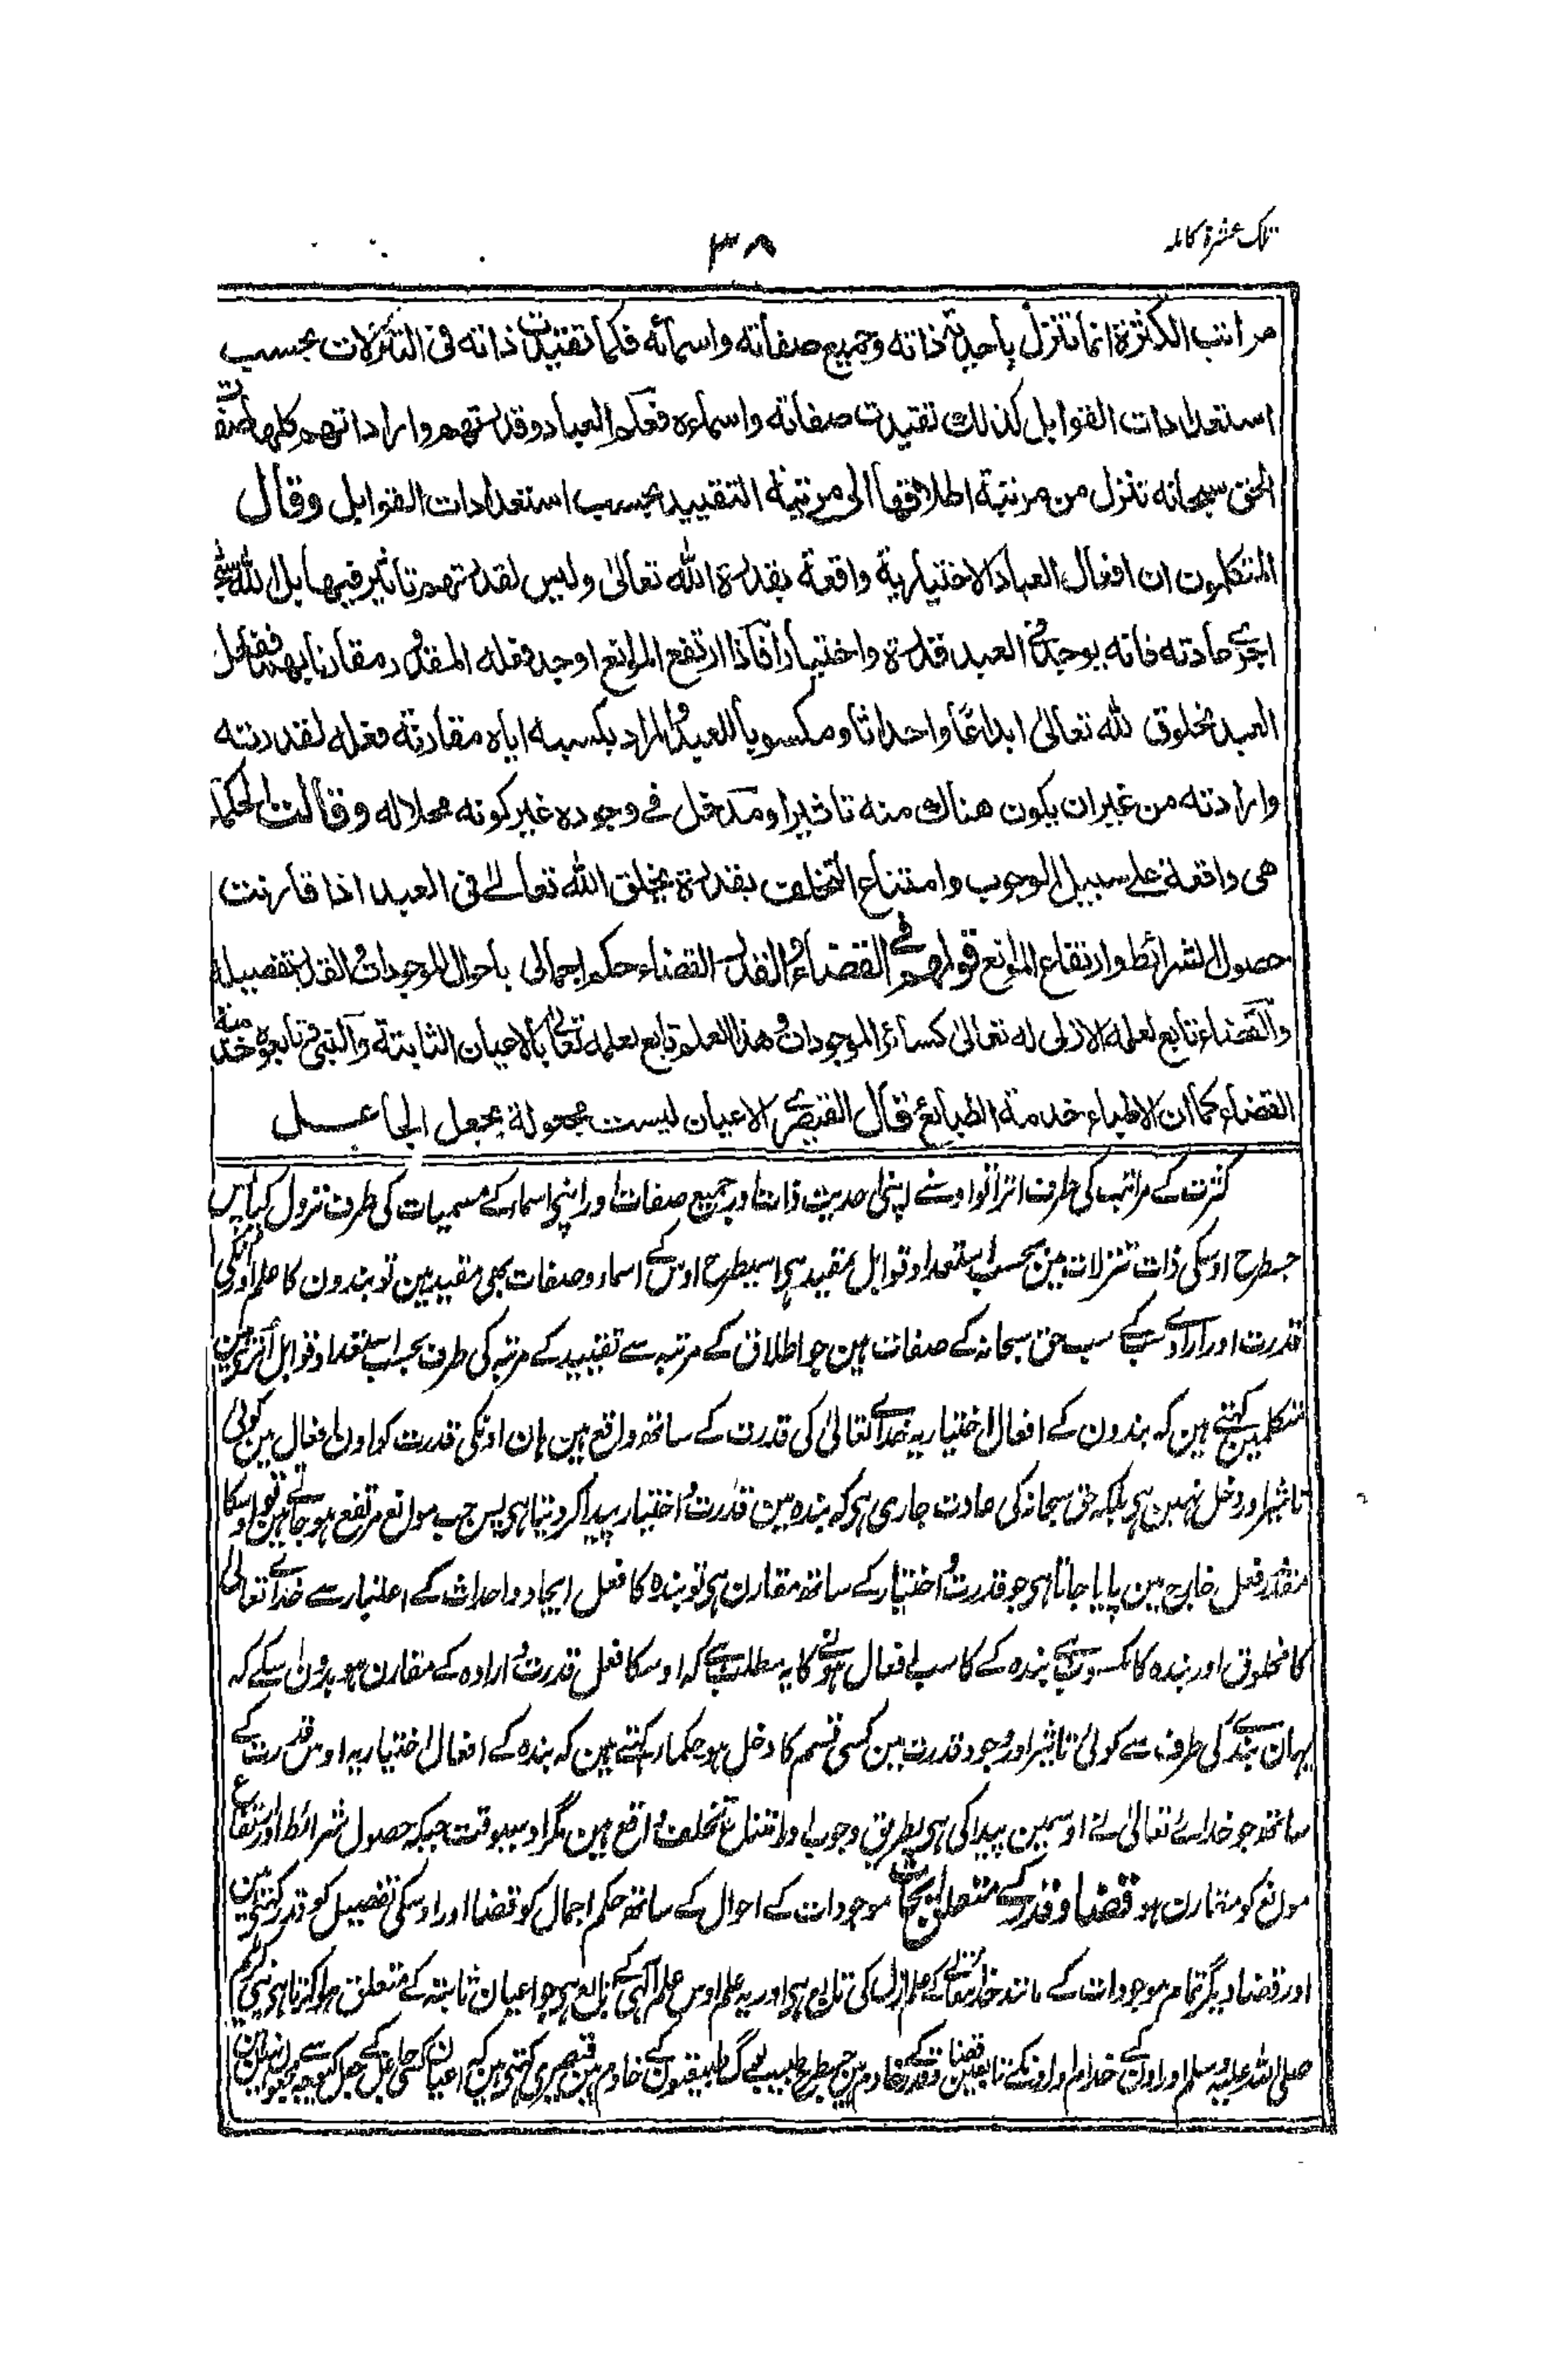 تلک عشرۃ کاملہ
۳۸
مراتب الكثرة انما تنزل بأحدية ذاته وجميع صفاته واسمائه فكما تقيدت ذاته فى التنزلات بحسب
استعدادات القوابل كذلك تقيدت صفاته واسماءه فعلم العباد وقدرتهم واراداتهم كلها صفات
الحق سبحانه تنزل من مرتبة اطلاقها الى مرتبة التقييد بحسب استعدادات القوابل وقال
المتكلمون ان افعال العباد الاختيارية واقعة بقدرة الله تعالىٰ وليس لقدرتهم تاثير فيها بل الله سبحانه
اجرى عادته فانه يوجد فى العبد قدرة واختيارا فاذا ارتفع الموانع اوجد فعله المقدور مقارنا بهما ففعل
العبد مخلوق لله تعالىٰ ابداعًا واحداثا ومكسوبا للعبد والمراد بكسبه اياه مقارنة فعله لقدرته
وارادته من غير ان يكون هناك منه تاثير او مدخل فے وجوده غير كونه محلا له وقالت الحكماء
هى واقعة علے سبيل الوجوب وامتناع التخلف بقدرة يخلق الله تعالےٰ فى العبد اذا قارنت
حصول الشرائط وارتفاع الموانع قولهم فے القضاء والقدر القضاء حكم اجمالى باحوال الموجودات والقدر تفصيله
والقضاء تابع لعلمه الازلى له تعالىٰ كسائر الموجودات وهذا العلم تابع لعلمه تعالىٰ بالاعيان الثابتة والنبى وتابعوه خدمة
القضاء كما ان الاطباء خدمة الطبائع قال القيصرى الاعيان ليست مجعولة بجعل الجاعل
کثرت کے مراتب کی طرف اترا تو اوسنے اپنی احدیت ذات اور جمیع صفات اور اپنی اسماء کے مسمیات کی طرف نزول کیا پس
جسطرح اوسکی ذات تنزلات مین بحسب استعداد قوابل مقید ہی اسیطرح اوس کے اسماء وصفات بھی مقید ہین تو بندون کا علم اونکی
قدرت اور ارادے سب کے سب حق سبحانہ کے صفات ہین جو اطلاق کے مرتبہ سے تقیید کے مرتبہ کی طرف بحسب استعداد قوابل اترے ہین
متکلمین کہتے ہین کہ بندون کے افعال اختیاریہ خداے تعالیٰ کی قدرت کے ساتھ واقع ہین ہان اونکی قدرت کو اون افعال مین کوئی
تاثیر اور دخل نہین ہی بلکہ حق سبحانہ کی عادت جاری ہی کہ بندہ مین قدرت و اختیار پیدا کر دیتا ہی پس جب موانع مرتفع ہو جاتے ہین تو اوسکا
مقدر فعل خارج مین پایا جاتا ہی جو قدرت و اختیار کے ساتھ مقارن ہی تو بندہ کا فعل ایجاد و احداث کے اعتبار سے خداے تعالیٰ
کا مخلوق اور بندہ کا مکسوب ہے بندہ کے کاسب افعال ہونے کا یہ مطلب ہے کہ اوسکا فعل قدرت و ارادہ کے مقارن ہو بدون اسکے کہ
یہان بندے کی طرف سے کوئی تاثیر اور وجود قدرت مین کسی قسم کا دخل ہو حکماء کہتے ہین کہ بندہ کے افعال اختیاریہ اوس قدرت کے
ساتھ جو خداے تعالیٰ نے اوسمین پیدا کی ہی بطریق وجوب اور امتناع تخلف واقع ہین مگر اوسیوقت جبکہ حصول شرائط اور ارتفاع
موانع کو مقارن ہو قضا و قدر کے متعلق ابحاث موجودات کے احوال کے ساتھ حکم اجمال کو قضا اور اوسکی تفصیل کو قدر کہتے ہین
اور قضا دیگر تمام موجودات کے مانند خداے تعالیٰ کے علم ازلی کی تابع ہی اور یہ علم اوس علم الٰہی کے تابع ہی جو اعیان ثابتہ کے متعلق ہوا کرتا ہی نبی کریم
صلی اللہ علیہ وسلم اور اون کے خدام اور اونکے تابعین قضا و قدر کے خادم ہین جسطرح طبیب لوگ طبیعتون کے خادم ہین قیصری کہتے ہین کہ اعیان کسی جاعل کے جعل